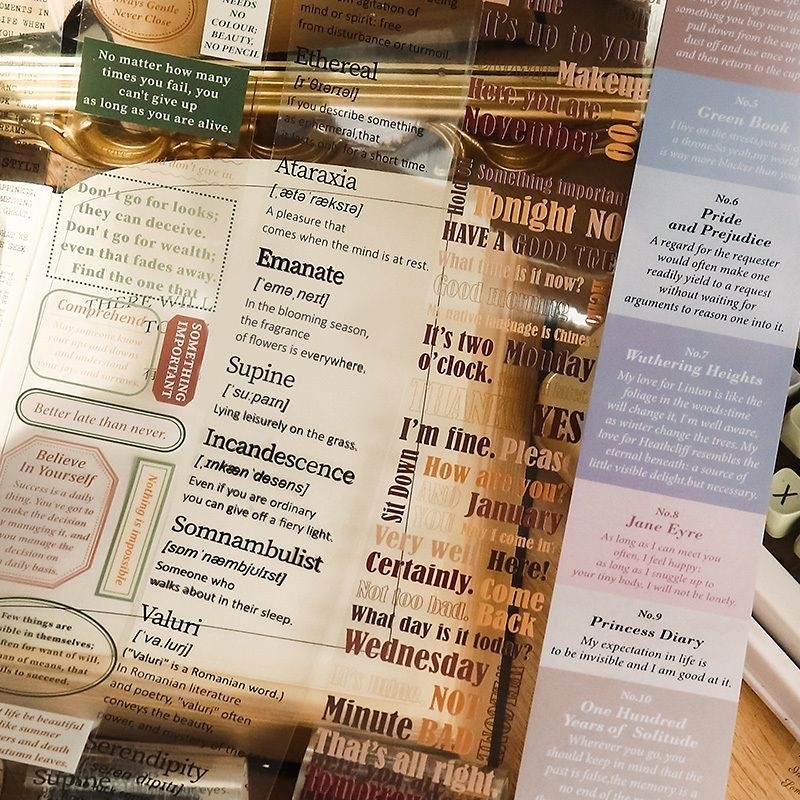 Always Gentle
Never Close
NEEDS
NO
COLOUR;
BEAUTY,
NO PENCIL
No matter how many
times you fail, you
can't give up
as long as you are alive.
STYLE
Don't go for looks;
they can deceive.
Don't go for wealth;
even that fades away.
Find the one that
THERE WILL
Comprehend
May someone know
your ups and downs
and understand
your joys and sorrows.
SOMETHING
IMPORTANT
Better late than never.
Believe
In Yourself
Success is a daily
thing. You've got to
make the decision
managing it, and
you manage the
decision on
daily basis.
Nothing is impossible
Few things are
in themselves;
often for want of will,
than of means, that
to succeed.
life be beautiful
like summer
and death
autumn leaves.
agitation of
mind or spirit: free
from disturbance or turmoil.
Ethereal
[ɪˈθɪəriəl]
If you describe something
as ephemeral,that
it lasts only for a short time.
Ataraxia
[ˌætəˈræksɪə]
A pleasure that
comes when the mind is at rest.
Emanate
[ˈeməˌneɪt]
In the blooming season,
the fragrance
of flowers is everywhere.
Supine
[ˈsuːpaɪn]
Lying leisurely on the grass.
Incandescence
[ˌɪnkænˈdesəns]
Even if you are ordinary
you can give off a fiery light.
Somnambulist
[sɒmˈnæmbjʊlɪst]
Someone who
walks about in their sleep.
Valuri
[ˈva.lurʲ]
("Valuri" is a Romanian word.)
In Romanian literature
and poetry, "valuri" often
conveys the beauty,
power, and mystery of the
Serendipity
Supine
It's up to you
Makeup
Here you are
TOO
November
Hold
Something important
Tonight NO
HAVE A GOOD TIME
What time is it now?
Good morning
My native language is Chinese
It's two
o'clock.
Monday
YES
I'm fine.
Pleas
Sit Down
How are you?
AND
YOU
January
May I come in?
Very well
Here!
Certainly.
Come
Back
Not too bad.
What day is it today?
Wednesday
It's mine.
NOT
Minute BAD
That's all right
Tomorrow
something you buy now
pull down from the
dust off and once or
and then return to the cup
No.5
Green Book
I live on the streets,you sit
a throne.So
is way more blacker than yo
No.6
Pride
and Prejudice
A regard for the requester
would often make one
readily yield to a request
without waiting for
arguments to reason one into it.
No.7
Wuthering Heights
My love for Linton is like the
foliage in the woods:time
will change it, I'm well aware,
as winter change the trees. My
love for Heathcliff resembles the
eternal beneath: a source of
little visible delight,but necessary.
No.8
Jane Eyre
As long as I can meet you
often, I feel happy;
as long as I snuggle up to
your tiny body, I will not be lonely.
No.9
Princess Diary
My expectation in life is
to be invisible and I am good at it.
No.10
One Hundred
Years of Solitude
Wherever you go, you
should keep in mind that the
past is false,the memory is a
no end of the
X